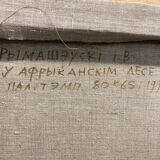 РЫМАШЭЎСКІ Г.В.
У АФРЫКАНСКІМ ЛЕСЕ
ПАЛ. ТЭМП. 80×65. 199